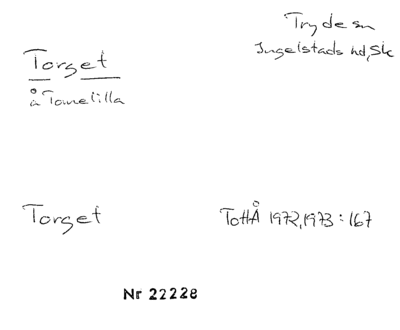 Tryde sn
Ingelstads hd, Sk
Torget
å Tomelilla
Torget
TotHÅ 1972, 1973:167
Nr 22228